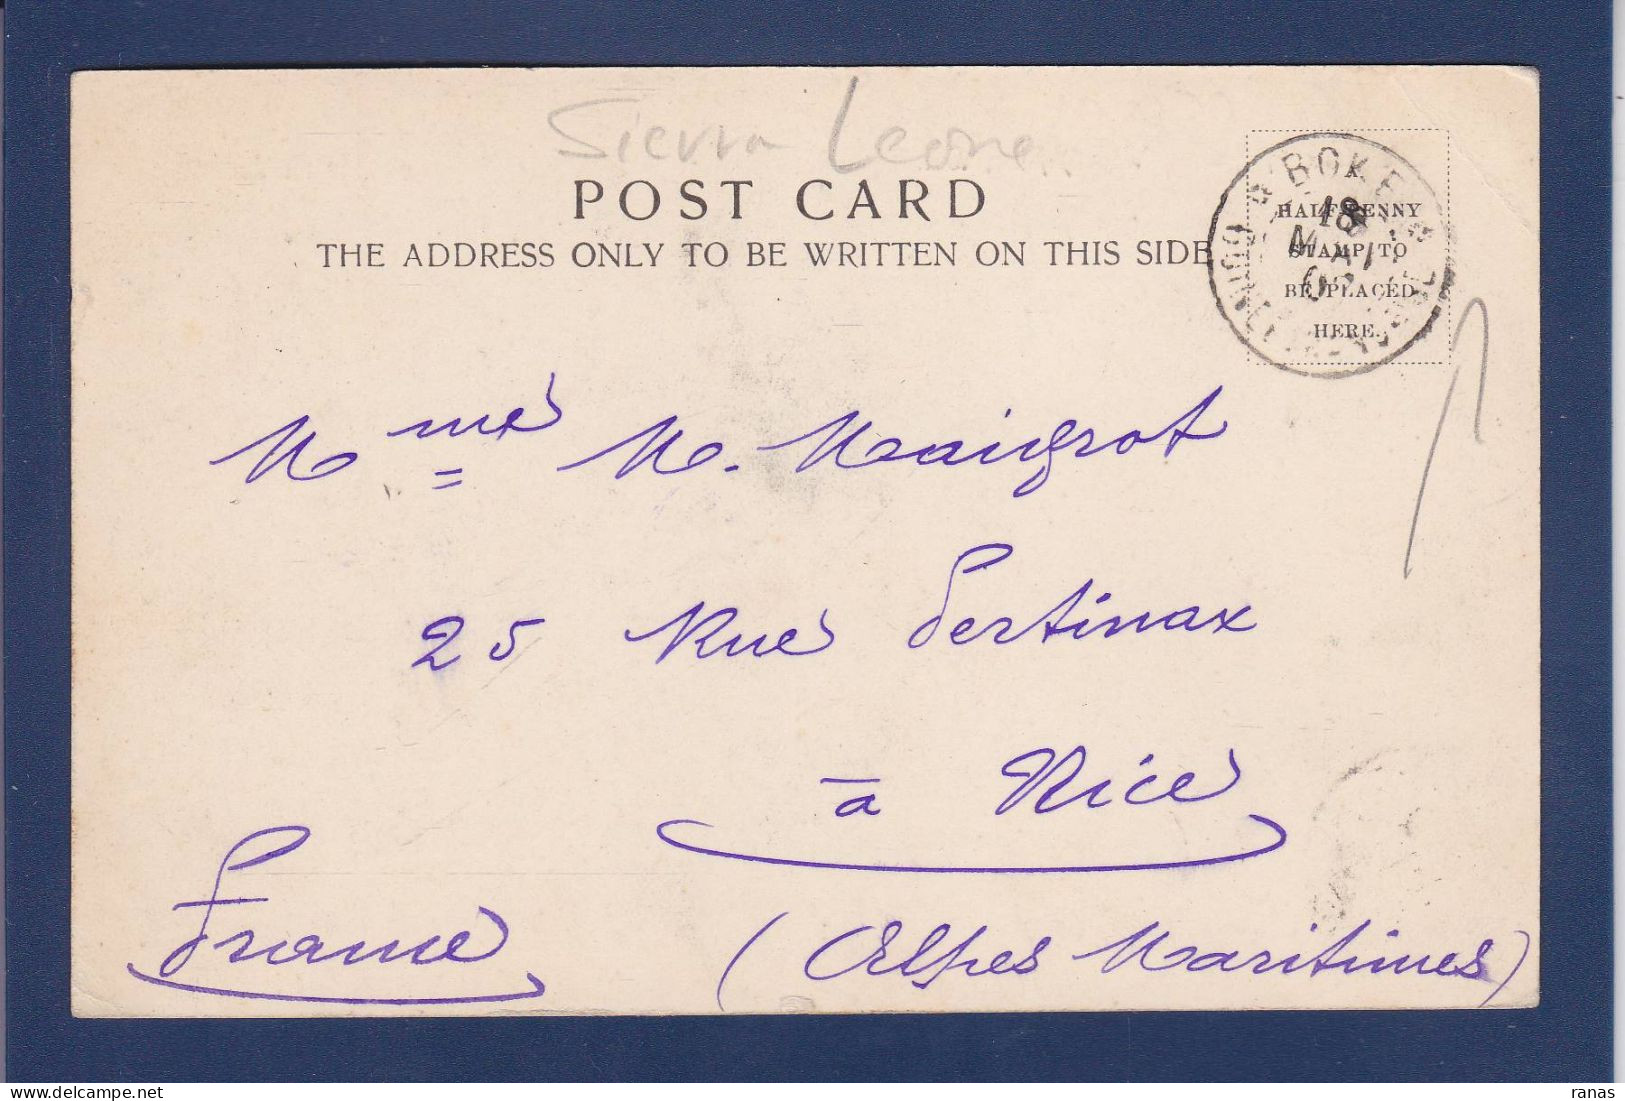 Sierra Leone
POST CARD
THE ADDRESS ONLY TO BE WRITTEN ON THIS SIDE
A
HALFPENNY
STAMP TO
BE PLACED
HERE.
BOKE
18
MAI
Mme M. Maigrot
25 Rue Pertinax
à Nice
France
(Alpes Maritimes)
ranas